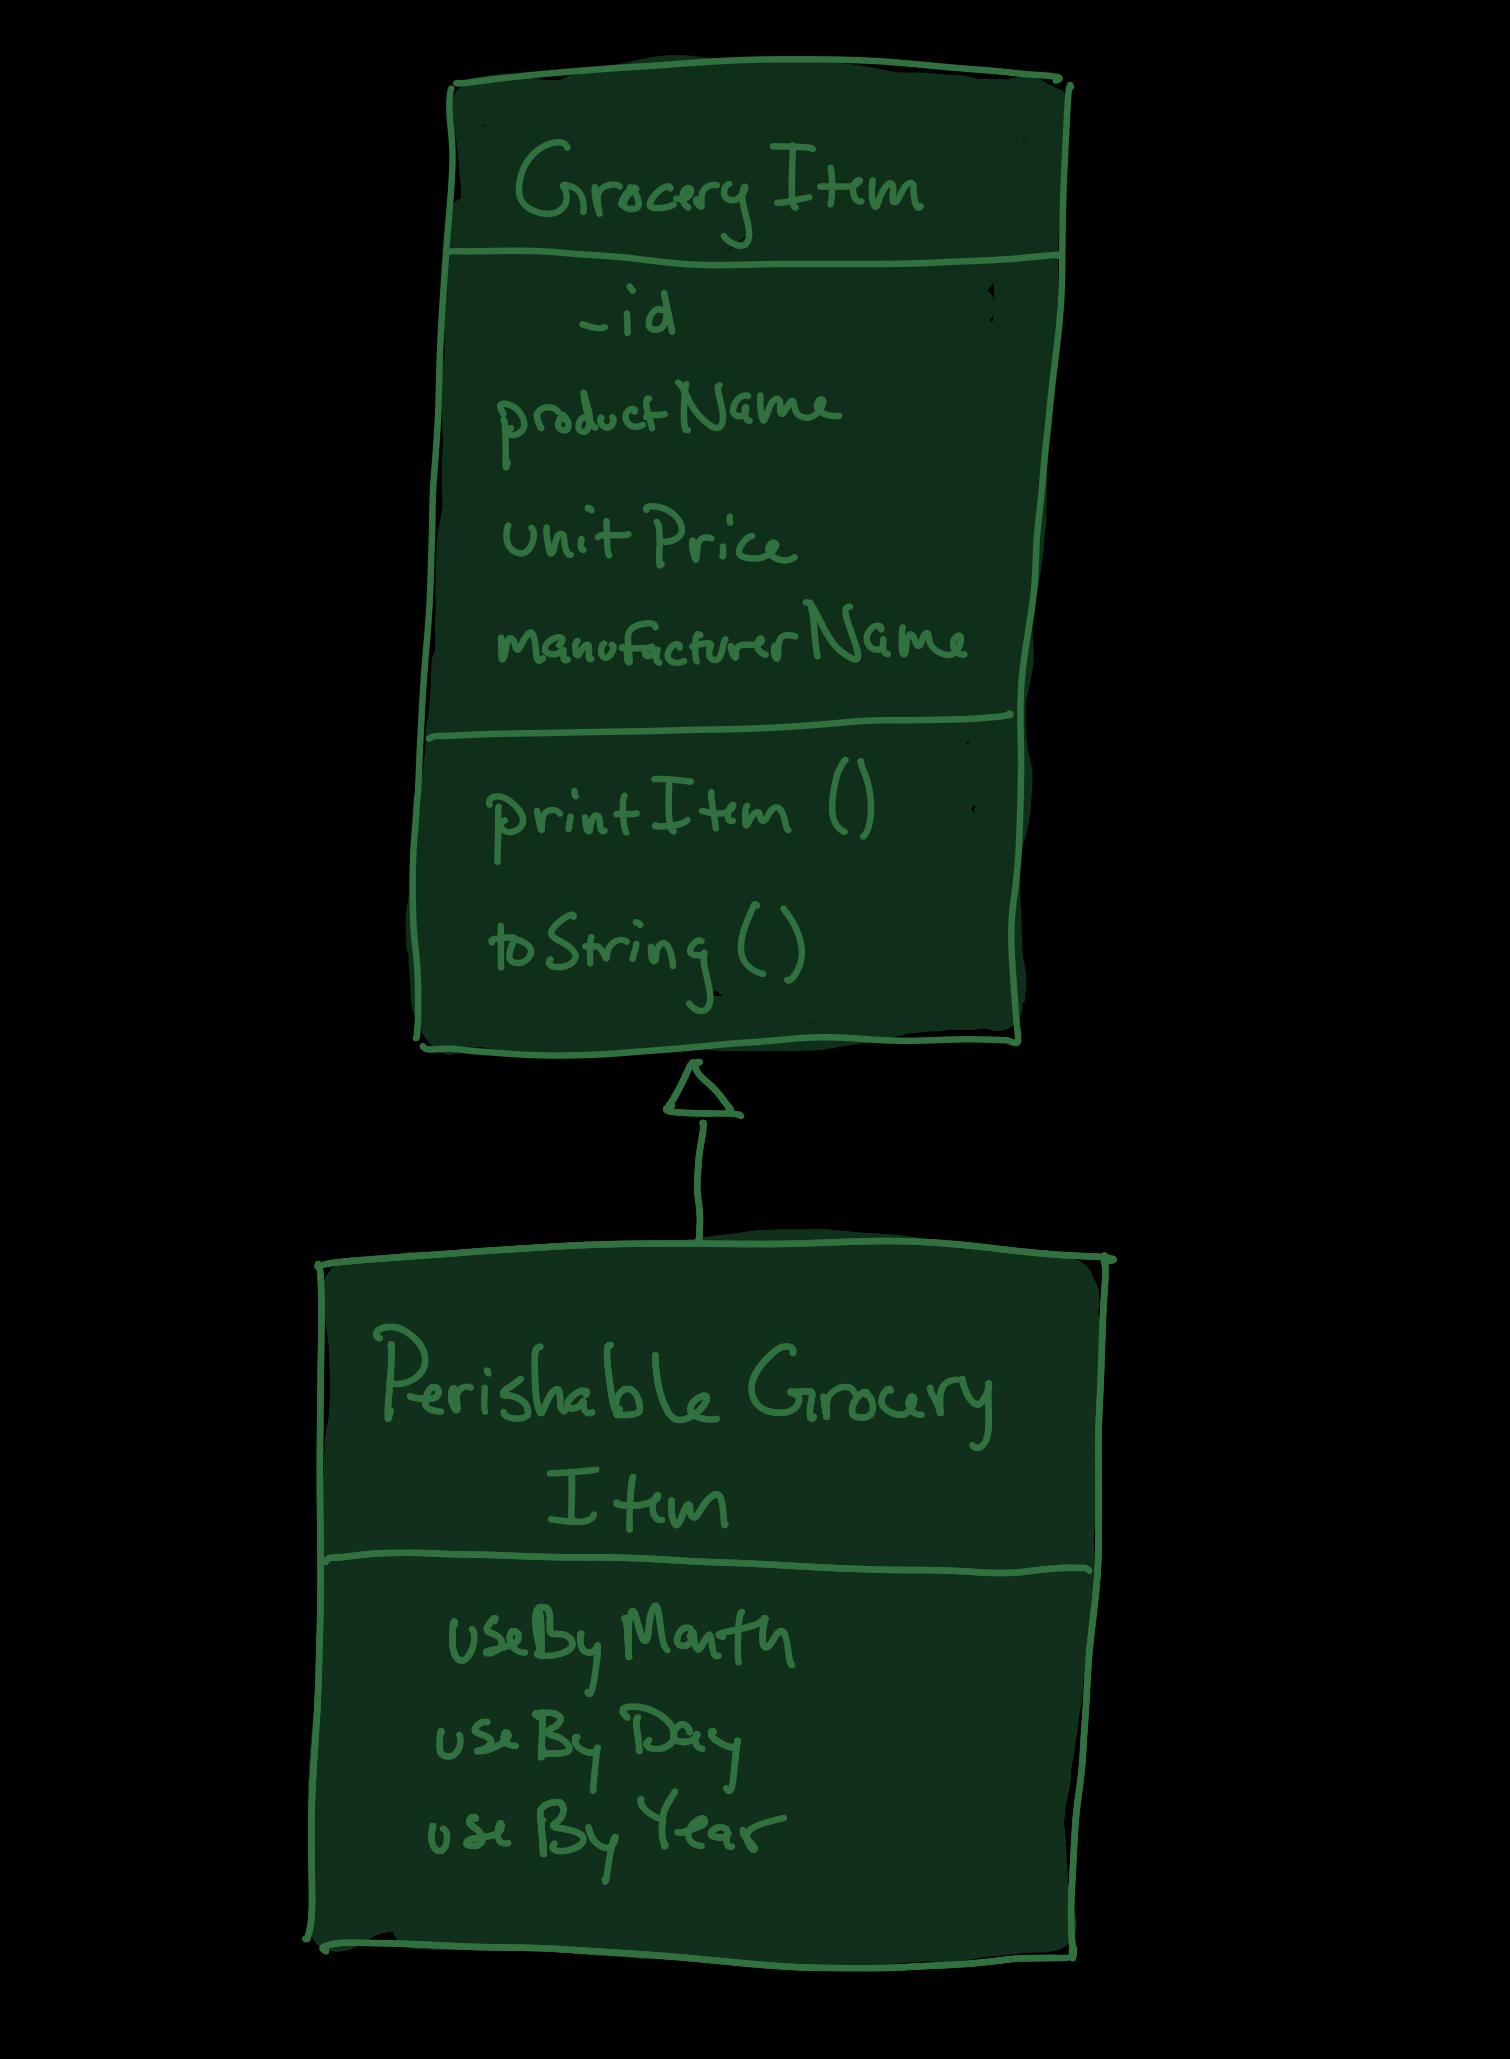 Grocery Item
-id
productName
unitPrice
manufacturerName
printItem ()
toString ()
Perishable Grocery
Item
useByMonth
useByDay
useByYear